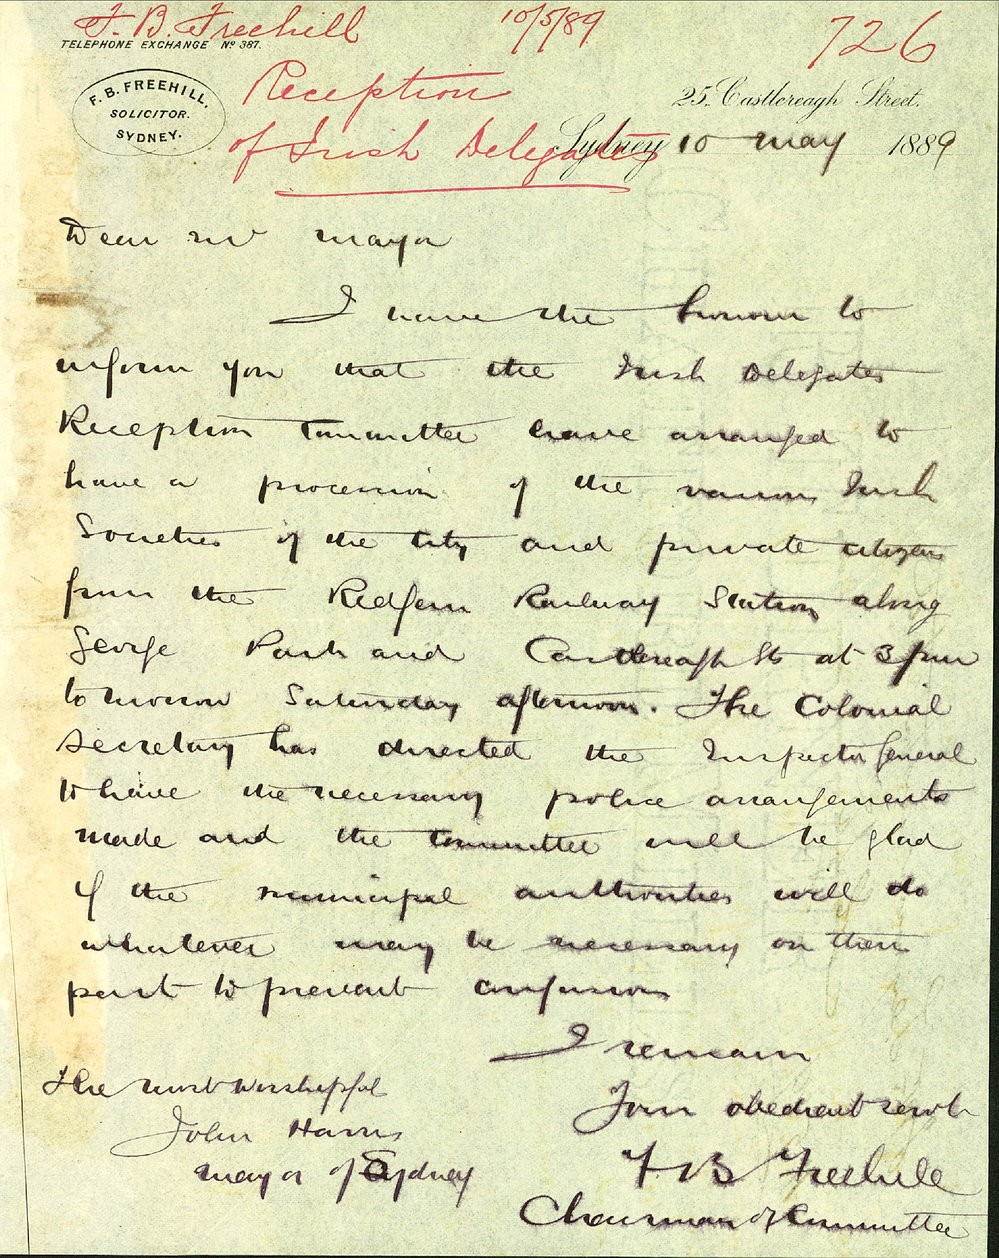 F. B. Freehill 10/5/89 726
TELEPHONE EXCHANGE No 387.
F. B. FREEHILL,
SOLICITOR.
SYDNEY.
Reception
of Irish Delegates
25, Castlereagh Street,
Sydney 10 May 1889
Dear Mr Mayor
I have the honour to
inform you that the Irish Delegates
Reception Committee have arranged to
have a procession of the various Irish
Societies of the City and private citizens
from the Redfern Railway Station along
George Park and Castlereagh Sts at 3 pm
tomorrow Saturday afternoon. The Colonial
Secretary has directed the Inspector General
to have the necessary police arrangements
made and the Committee will be glad
if the municipal authorities will do
whatever may be necessary on their
part to prevent confusion
I remain
Your obedient servt
F B Freehill
Chairman of Committee
The Most Worshipful
John Harris
Mayor of Sydney